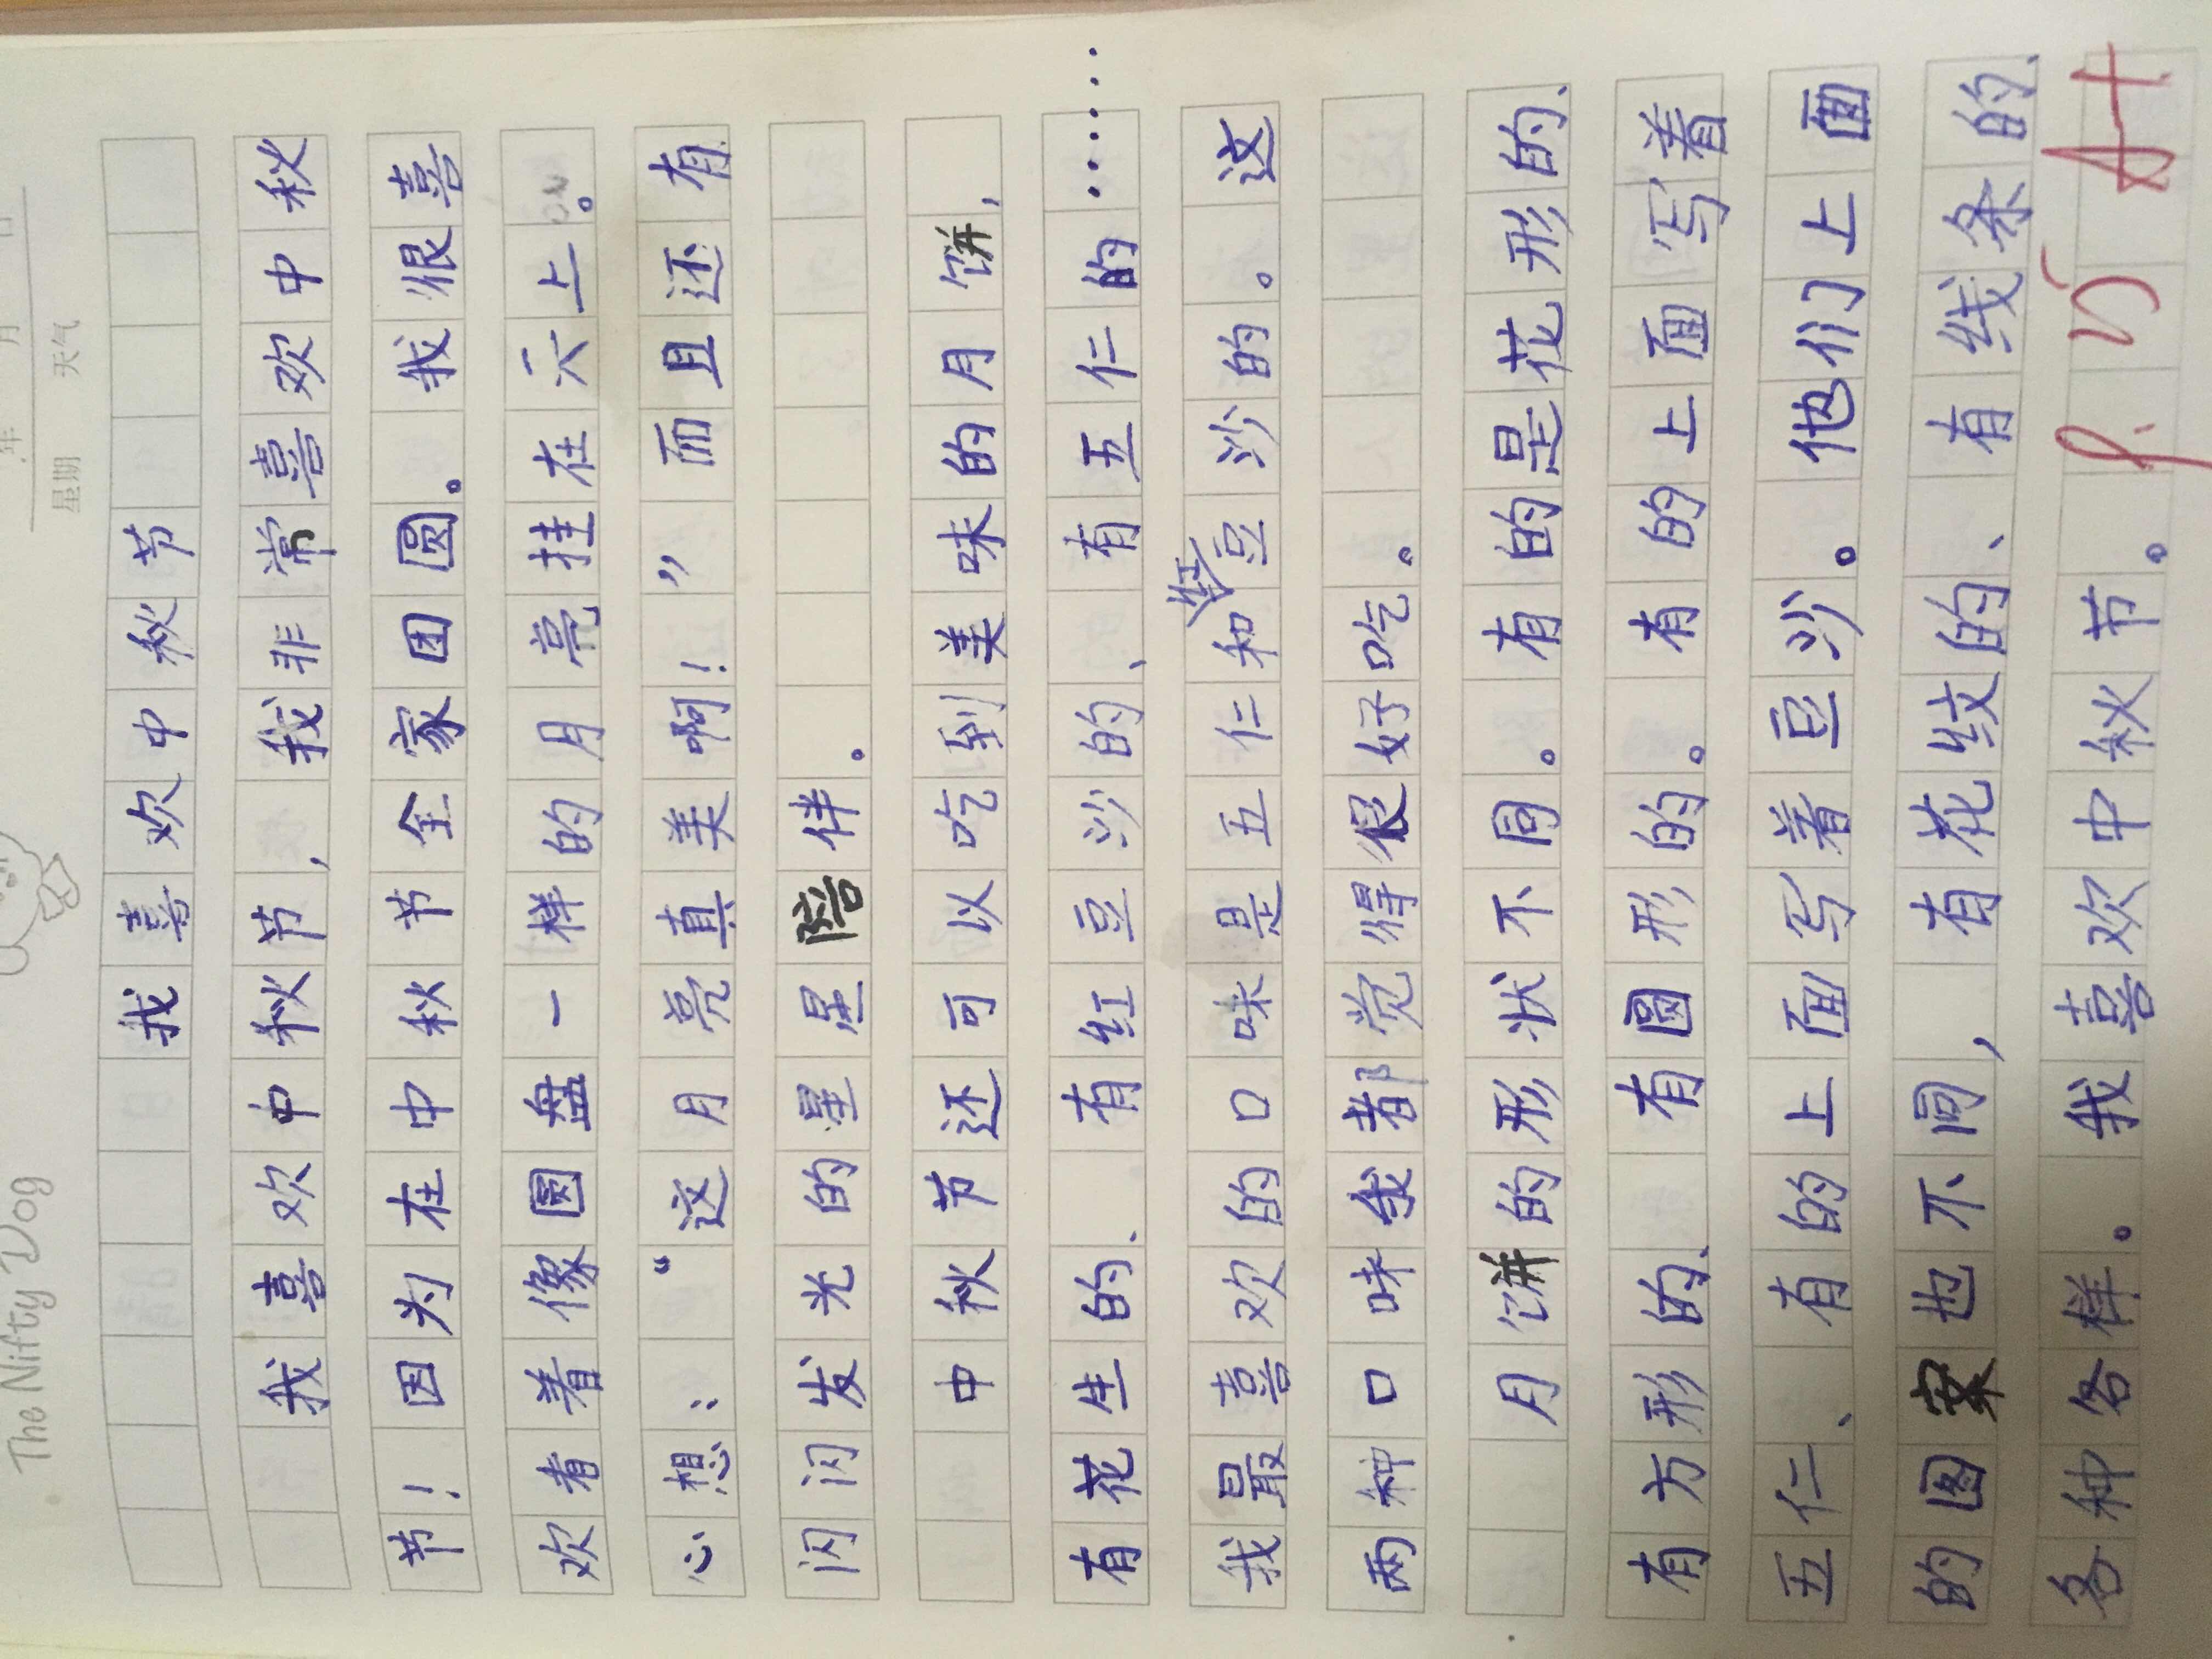 The Nifty Dog
年 月 日
星期 天气
我喜欢中秋节
我喜欢中秋节，我非常喜欢中秋
节！因为在中秋节全家团圆。我很喜
欢看着像圆盘一样的月亮挂在天上。
心想：“这月亮真美啊！”而且还有
闪闪发光的星星陪伴。
中秋节还可以吃到美味的月饼，
有花生的、有红豆沙的、有五仁的……
我最喜欢的口味是五仁和红豆沙的。这
两种口味我都觉得很好吃。
月饼的形状不同。有的是花形的、
有方形的、有圆形的。有的上面写着
五仁、有的上面写着豆沙。他们上面
的图案也不同，有花纹的、有线条的、
各种各样。我喜欢中秋节。
A+